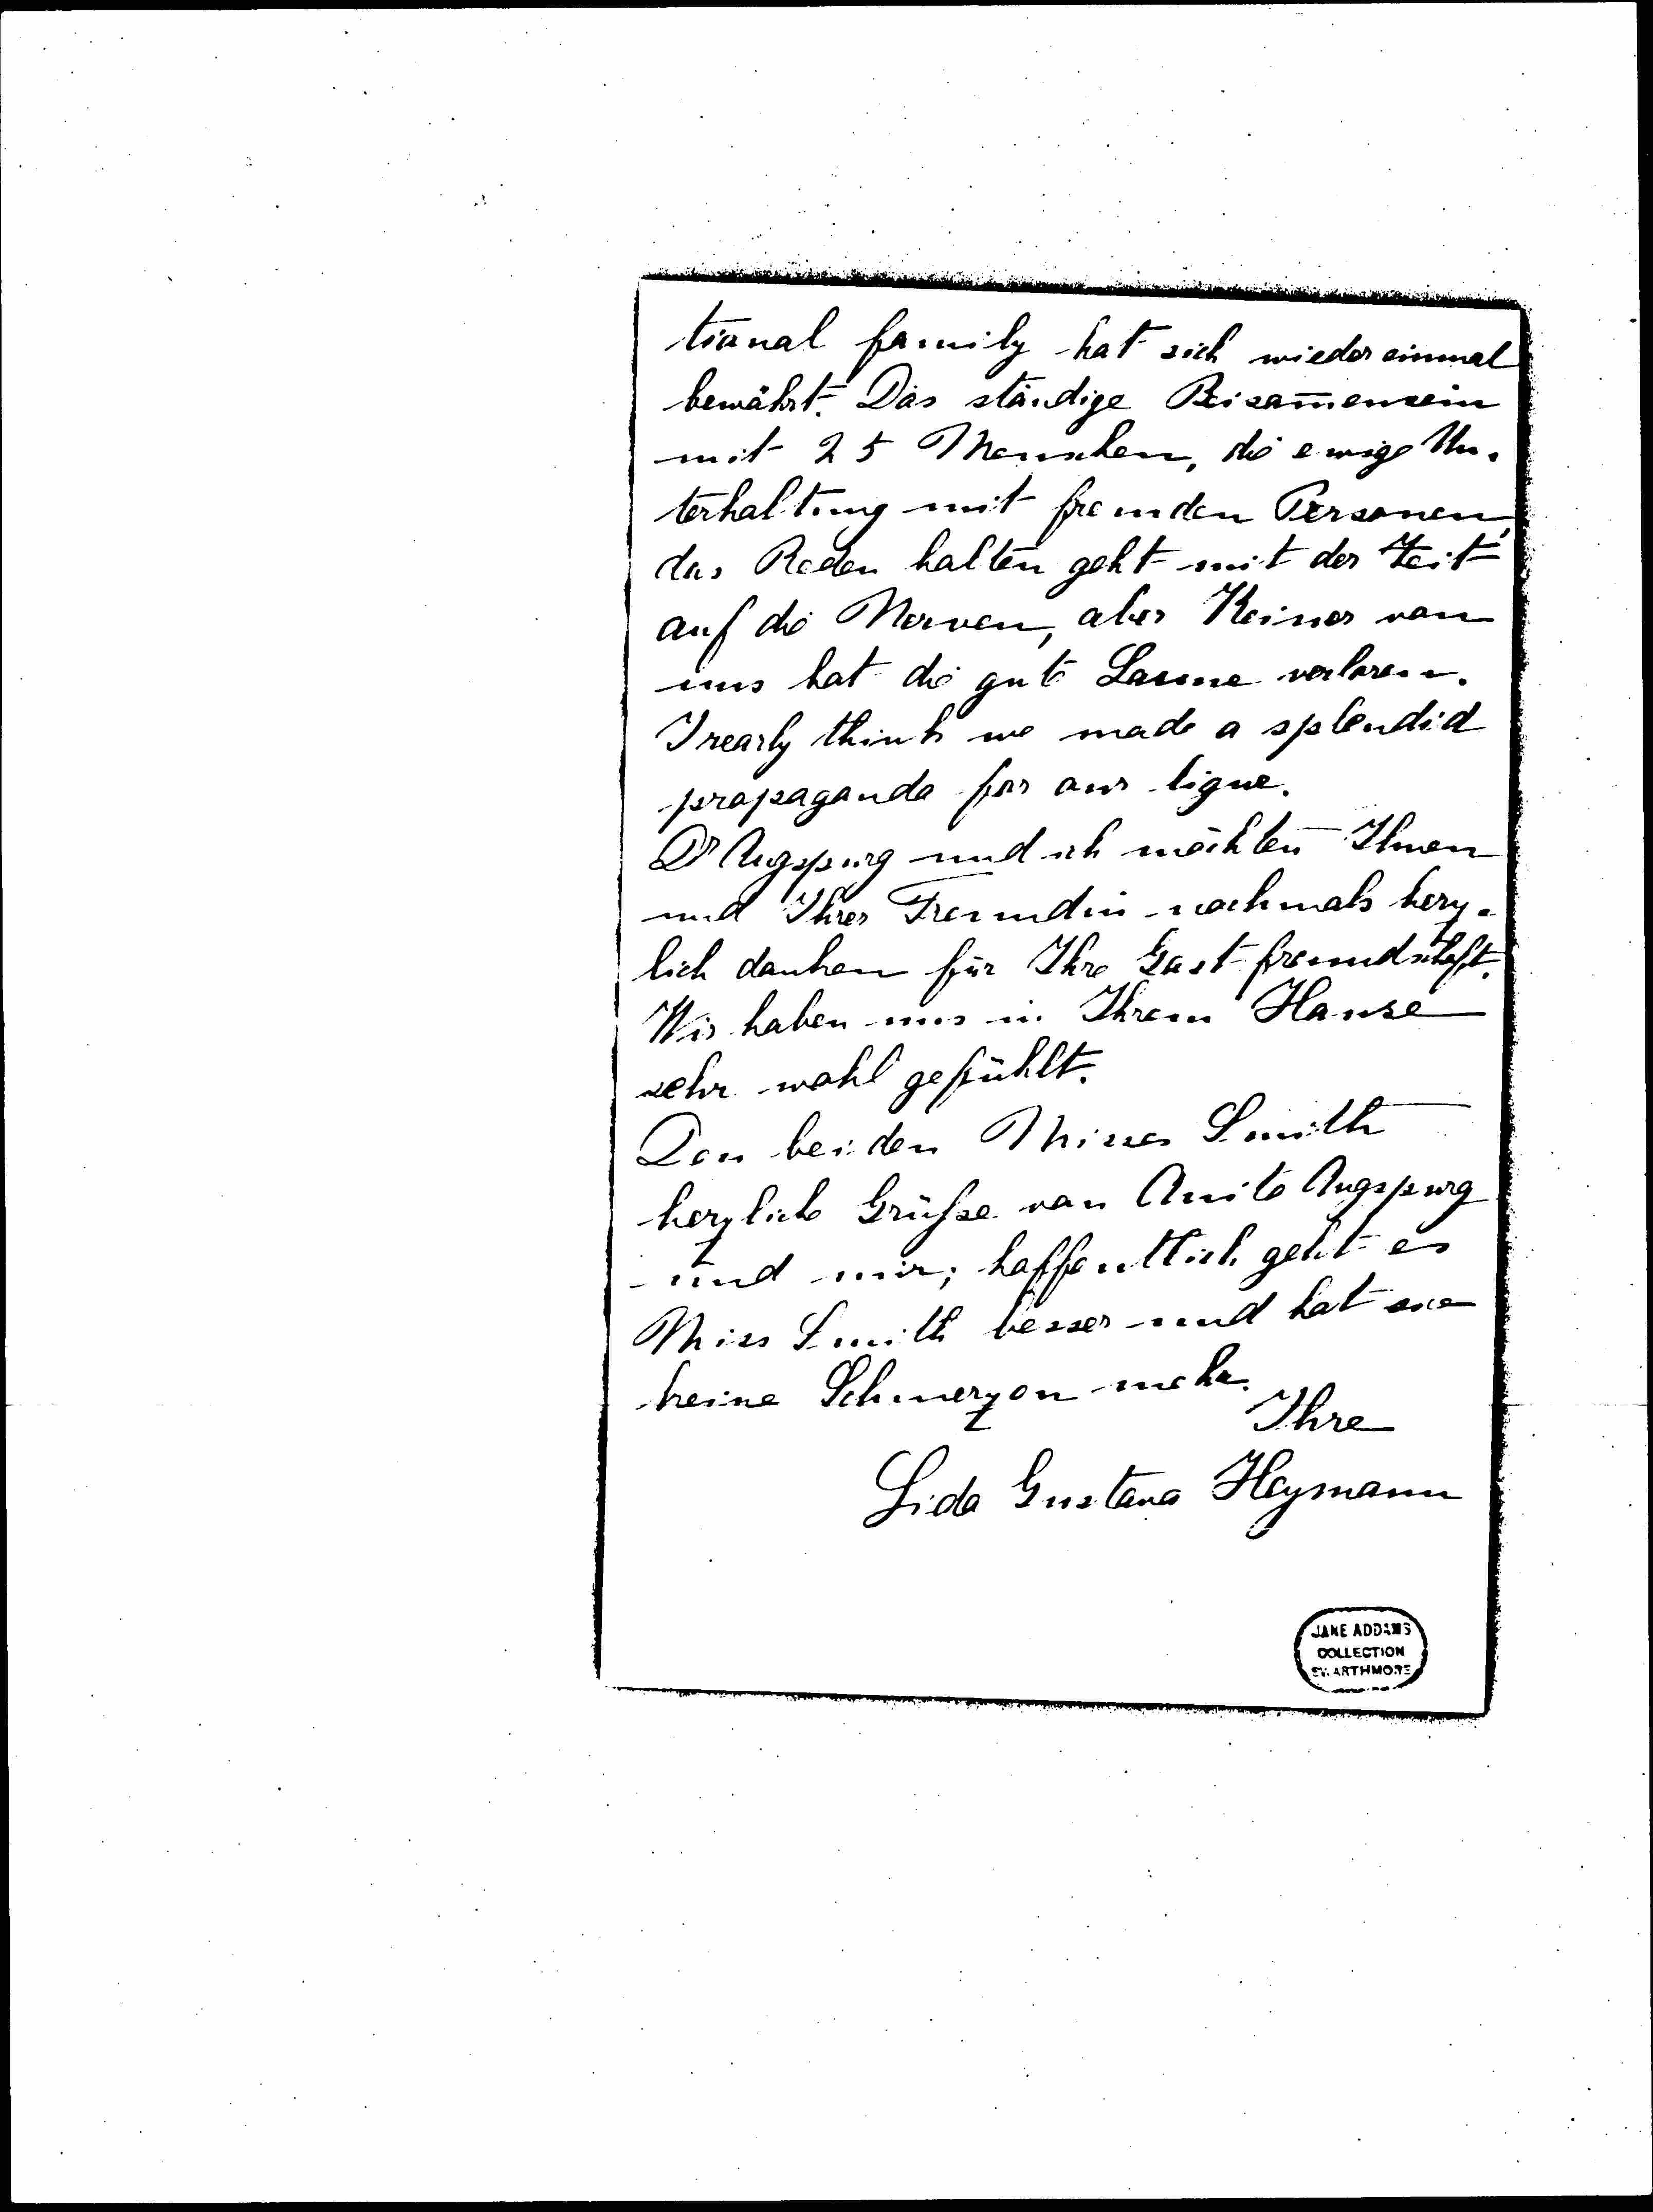 tional family hat sich wieder einmal
bewährt. Das ständige Beisam̅ensein
mit 25 Menschen, die ewige Un-
terhaltung mit fremden Personen,
das Reden halten geht mit der Zeit
auf die Nerven, aber Keiner von
uns hat die gute Laune verloren.
I rearly think we made a splendid
propaganda for our ligue.
Dr Augspurg und ich möchten Ihnen
und Ihrer Freundin nochmals herz-
lich danken für Ihre Gastfreundschaft.
Wir haben uns in Ihrem Hause
sehr wohl gefühlt.
Den beiden Misses Smith
herzliche Grüße von Anita Augspurg
und mir; hoffentlich geht es
Miss Smith besser und hat sie
keine Schmerzen mehr.
Ihre
Lida Gustava Heymann
JANE ADDAMS
COLLECTION
SWARTHMORE